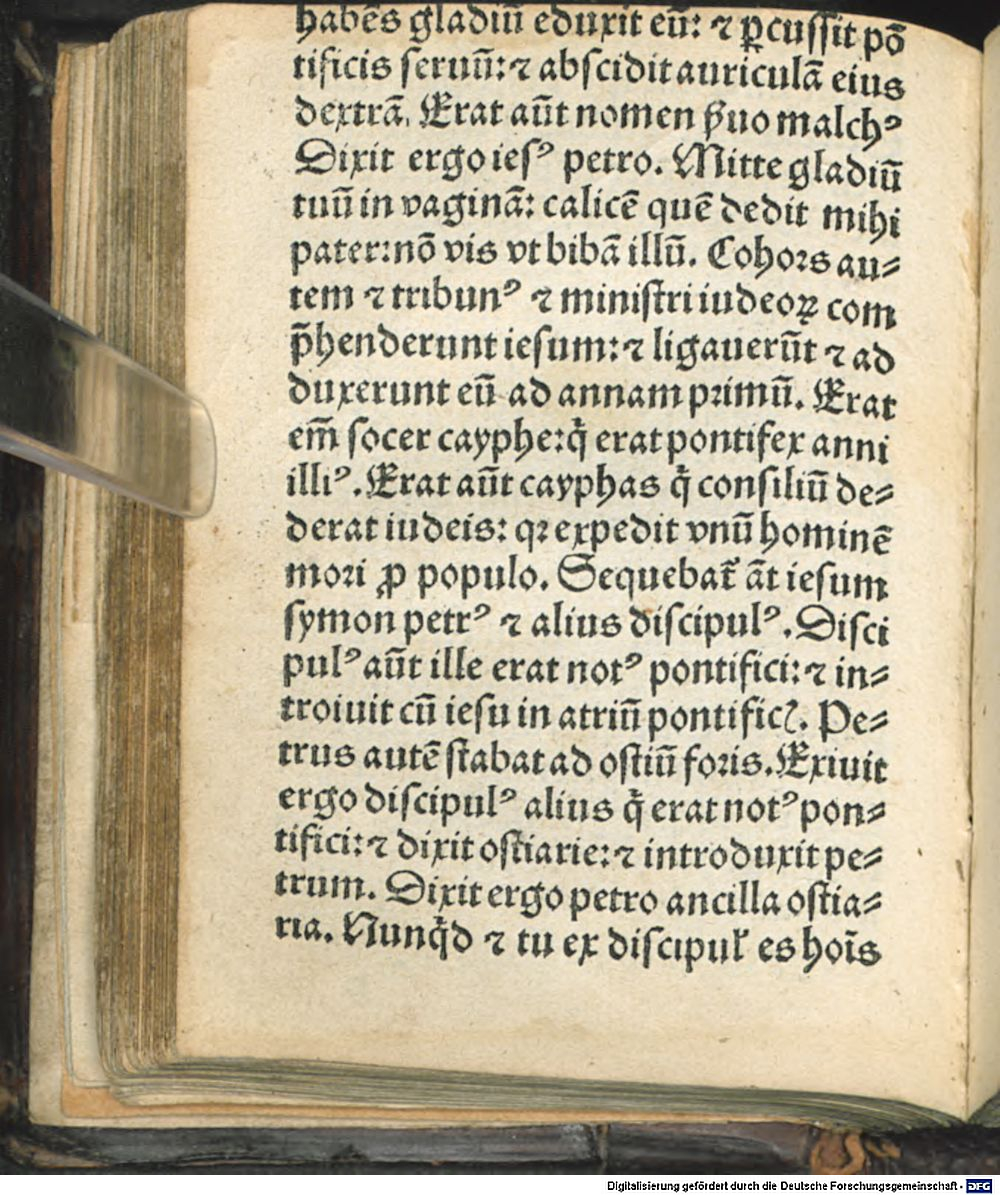 habēs gladiū eduxit eū: ⁊ ꝑcussit pō
tificis seruū: ⁊ abscidit auriculā eius
dextrā. Erat aūt nomen ẜuo malchꝰ
Dixit ergo iesꝰ petro. Mitte gladiū
tuū in vaginā: calicē quē dedit mihi
pater: nō vis vt bibā illū. Cohors au⸗
tem ⁊ tribunꝰ ⁊ ministri iudeoꝝ com
p̄henderunt iesum: ⁊ ligauerūt ⁊ ad
duxerunt eū ad annam primū. Erat
em̄ socer cayphe: q̇ erat pontifex anni
illiꝰ. Erat aūt cayphas q̇ consiliū de⸗
derat iudeis: qꝛ expedit vnū hominē
mori ꝓ populo. Sequebat᷑ āt iesum
symon petrꝰ ⁊ alius discipulꝰ. Disci
pulꝰ aūt ille erat notꝰ pontifici: ⁊ in⸗
troiuit cū iesu in atriū pontificꝭ. Pe⸗
trus autē stabat ad ostiū foris. Exiuit
ergo discipulꝰ alius q̇ erat notꝰ pon⸗
tifici: ⁊ dixit ostiarie: ⁊ introduxit pe⸗
trum. Dixit ergo petro ancilla ostia⸗
ria. Nunq̇d ⁊ tu ex discipul᷑ es hoīs
Digitalisierung gefördert durch die Deutsche Forschungsgemeinschaft - DFG